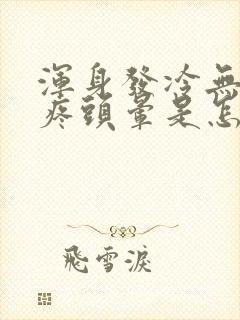 渾身發冷無
疼頭暈是怎
飛雪淚